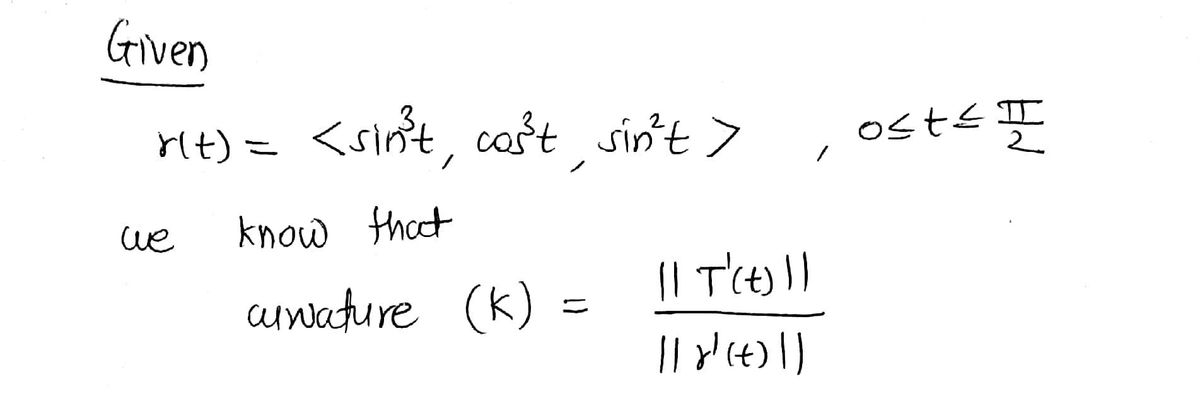 Given
r(t) = <sin³t, cos³t, sin²t> , 0≤t≤ π/2
we know that
curvature (K) = || T'(t) || / || r'(t) ||